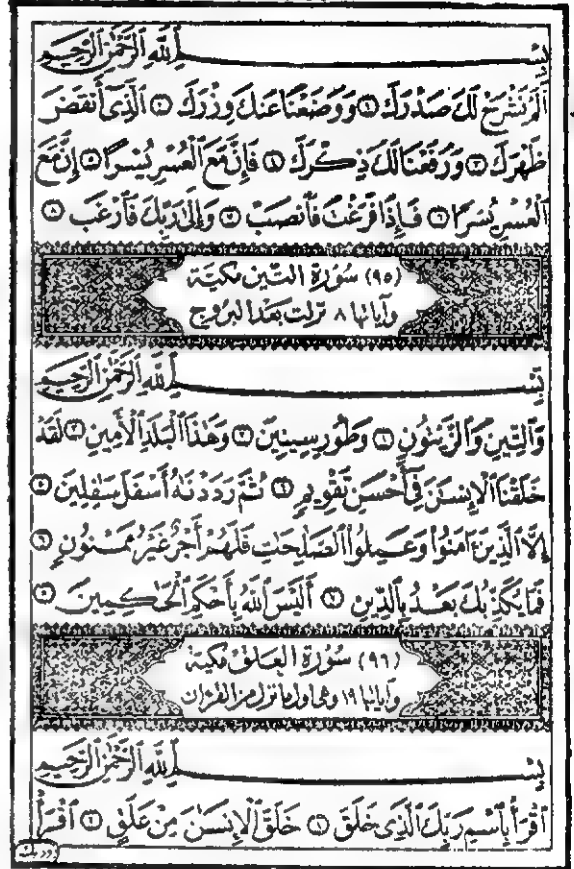 بِسْمِ ٱللَّهِ ٱلرَّحْمَٰنِ ٱلرَّحِيمِ
أَلَمْ نَشْرَحْ لَكَ صَدْرَكَ ١ وَوَضَعْنَا عَنكَ وِزْرَكَ ٢ ٱلَّذِىٓ أَنقَضَ
ظَهْرَكَ ٣ وَرَفَعْنَا لَكَ ذِكْرَكَ ٤ فَإِنَّ مَعَ ٱلْعُسْرِ يُسْرًا ٥ إِنَّ مَعَ
ٱلْعُسْرِ يُسْرًا ٦ فَإِذَا فَرَغْتَ فَٱنصَبْ ٧ وَإِلَىٰ رَبِّكَ فَٱرْغَب ٨
(٩٥) سُورَة التِّين مَكيَّة
وَآيَاتُهَا ٨ نزلت بَعْدَ البُرُوج
بِسْمِ ٱللَّهِ ٱلرَّحْمَٰنِ ٱلرَّحِيمِ
وَٱلتِّينِ وَٱلزَّيْتُونِ ١ وَطُورِ سِينِينَ ٢ وَهَٰذَا ٱلْبَلَدِ ٱلْأَمِينِ ٣ لَقَدْ
خَلَقْنَا ٱلْإِنسَٰنَ فِىٓ أَحْسَنِ تَقْوِيمٍ ٤ ثُمَّ رَدَدْنَٰهُ أَسْفَلَ سَٰفِلِينَ ٥
إِلَّا ٱلَّذِينَ ءَامَنُوا۟ وَعَمِلُوا۟ ٱلصَّٰلِحَٰتِ فَلَهُمْ أَجْرٌ غَيْرُ مَمْنُونٍ ٦
فَمَا يُكَذِّبُكَ بَعْدُ بِٱلدِّينِ ٧ أَلَيْسَ ٱللَّهُ بِأَحْكَمِ ٱلْحَٰكِمِينَ ٨
(٩٦) سُورَة العَلَق مَكيَّة
وَآيَاتُهَا ١٩ وَهى أول ما نزل من القرآن
بِسْمِ ٱللَّهِ ٱلرَّحْمَٰنِ ٱلرَّحِيمِ
ٱقْرَأْ بِٱسْمِ رَبِّكَ ٱلَّذِى خَلَقَ ١ خَلَقَ ٱلْإِنسَٰنَ مِنْ عَلَقٍ ٢ ٱقْرَأْ
وربك